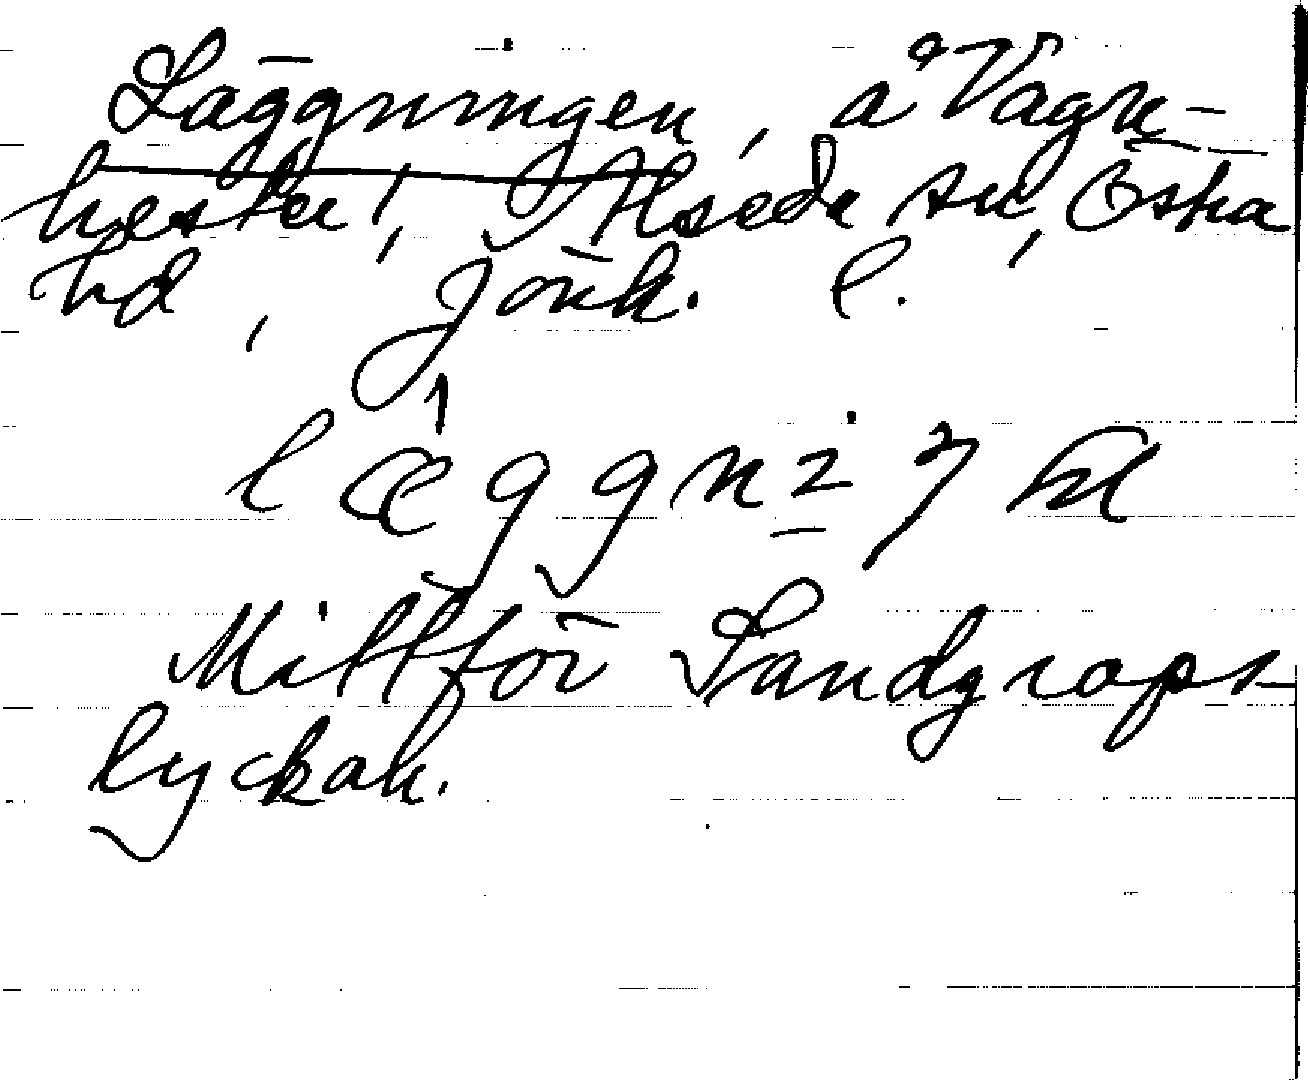 Läggningen, å Vägn-
hester, Alseda sn, Östra
hd, Jönk. l.
Mittför Landgraps-
lyckan.